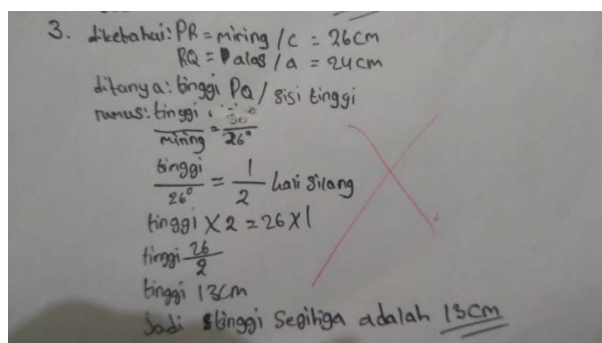 3. diketahui: PR = miring / c = 26 cm
RQ = alas / a = 24 cm
ditanya: tinggi PQ / sisi tinggi
rumus: tinggi
miring = 26°
tinggi / 26° = 1 / 2 kali silang
tinggi x 2 = 26 x 1
tinggi 26 / 2
tinggi 13 cm
Jadi tinggi Segitiga adalah 13 cm